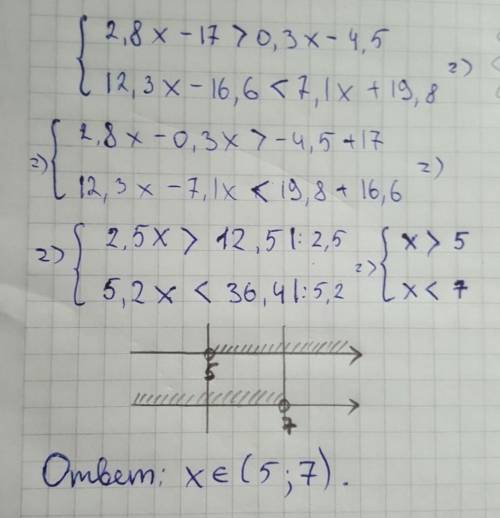 { 2,8x - 17 > 0,3x - 4,5
12,3x - 16,6 < 7,1x + 19,8 =>
=> { 2,8x - 0,3x > -4,5 + 17
12,3x - 7,1x < 19,8 + 16,6 =>
=> { 2,5x > 12,5 |: 2,5 => { x > 5
5,2x < 36,4 |: 5,2 x < 7
5
7
Ответ: x ∈ (5; 7).